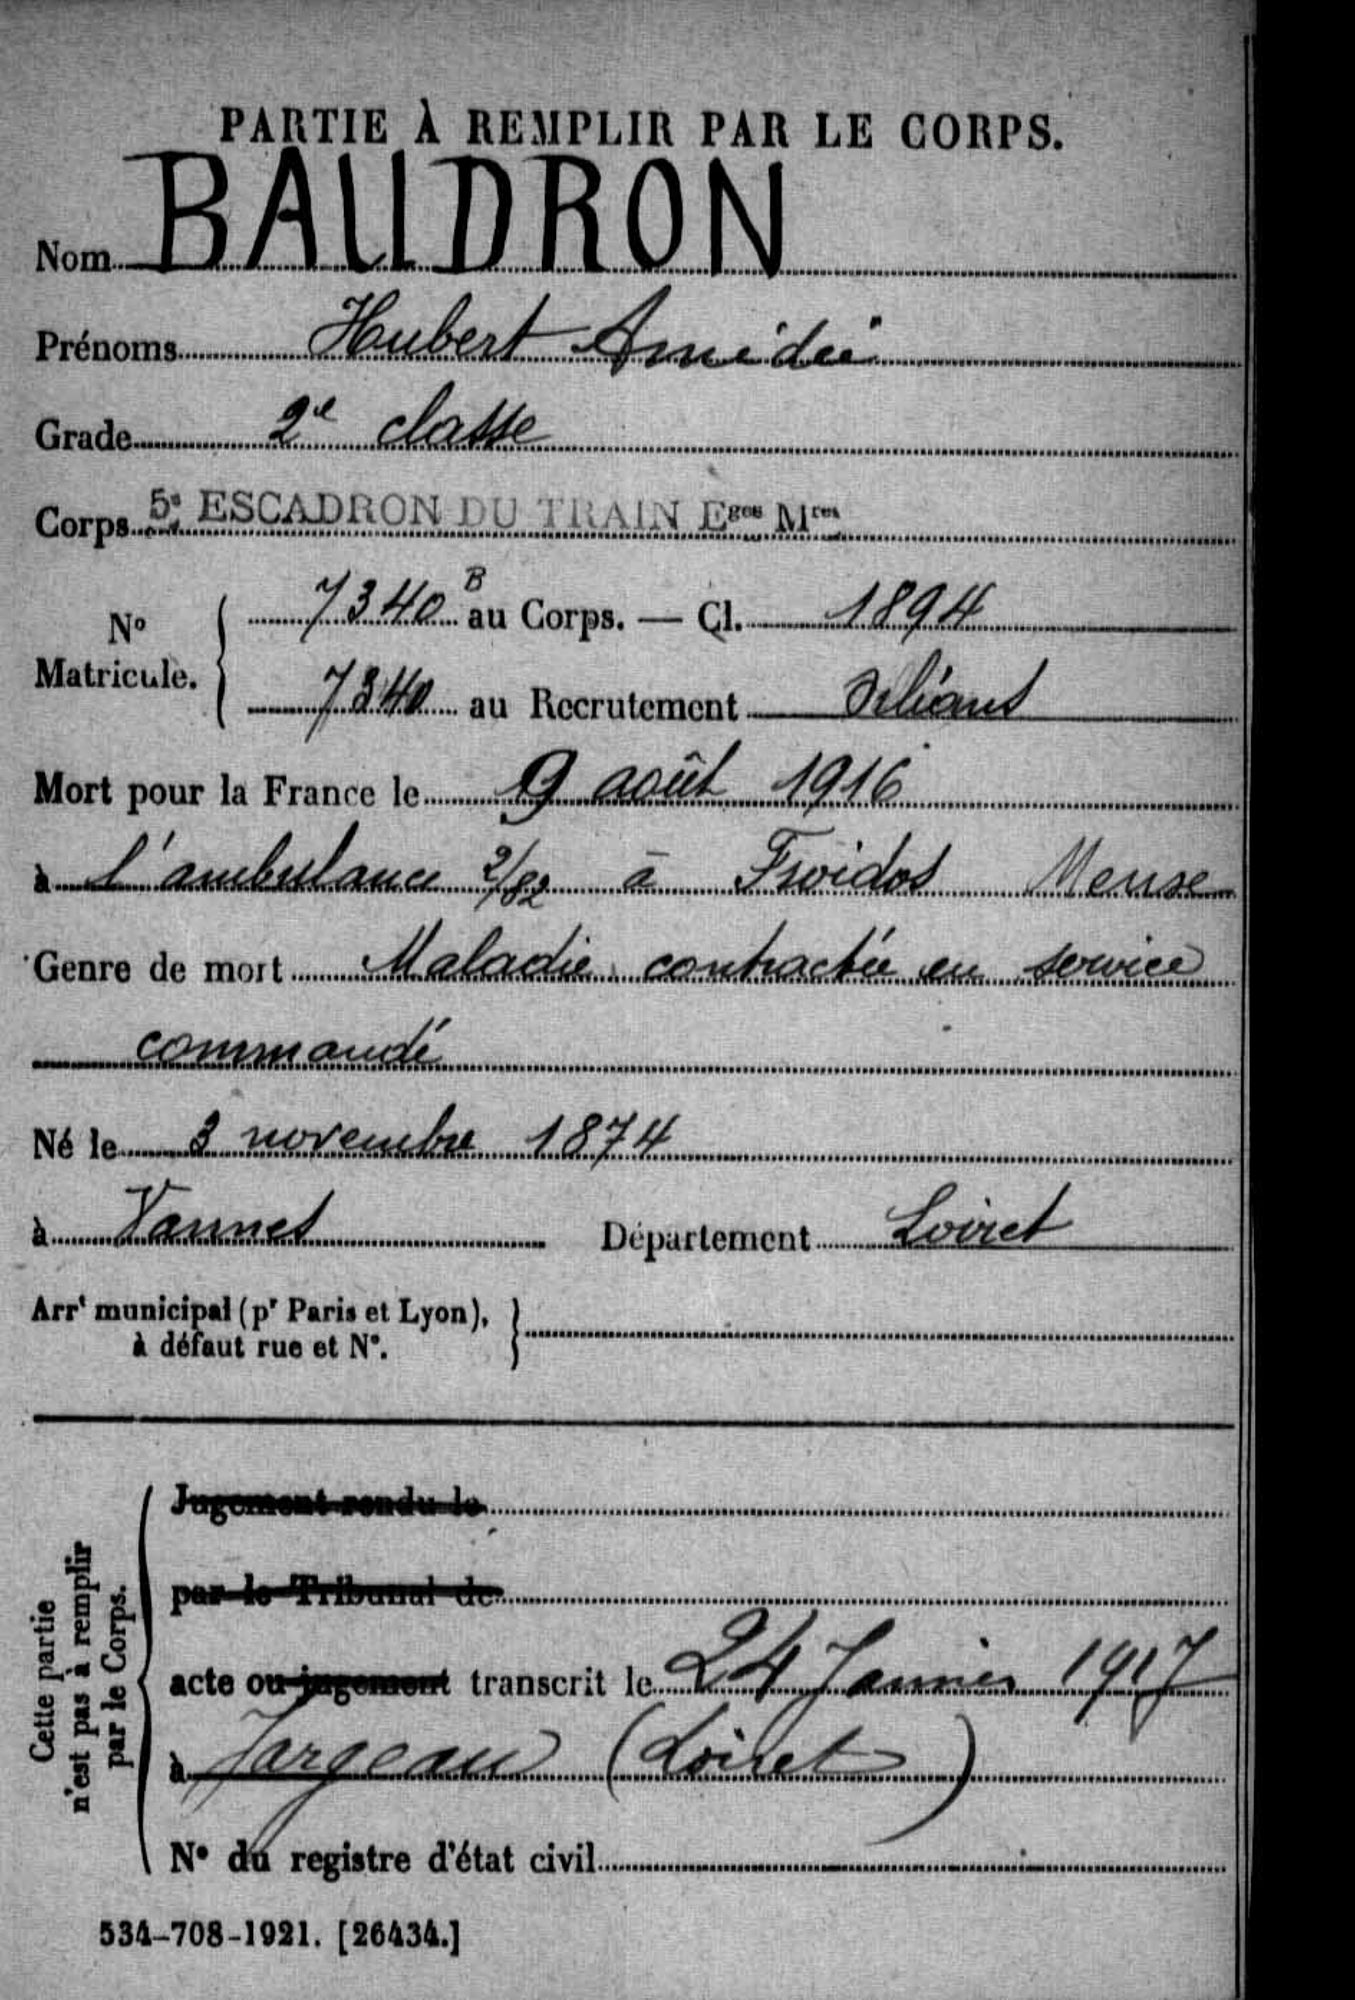 PARTIE À REMPLIR PAR LE CORPS.
Nom BAUDRON
Prénoms Hubert Amédée
Grade 2e classe
Corps 5e ESCADRON DU TRAIN Eges Mres
N° Matricule. 7340 B au Corps. — Cl. 1894
7340 au Recrutement Orléans
Mort pour la France le 9 août 1916
à l'ambulance 2/82 à Froidos Meuse
Genre de mort Maladie contractée en service
commandé
Né le 3 novembre 1874
à Vannes Département Loiret
Arrt municipal (pr Paris et Lyon),
à défaut rue et N°.
Cette partie
n'est pas à remplir
par le Corps.
Jugement rendu le
par le Tribunal de
acte ou jugement transcrit le 24 Janvier 1917
à Jargeau (Loiret)
N° du registre d'état civil
534-708-1921. [26434.]